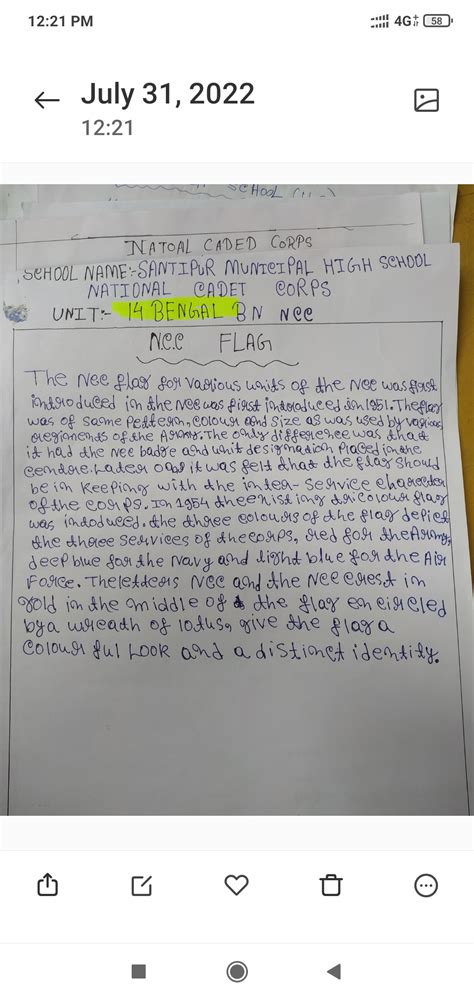 12:21 PM
4G
58
July 31, 2022
12:21
SCHOOL
NATOAL CADED CORPS
SCHOOL NAME:-SANTIPUR MUNICIPAL HIGH SCHOOL
NATIONAL CADET CORPS
UNIT:- 14 BENGAL BN NCC
N.C.C FLAG
The Ncc flag for various units of the Ncc was first
introduced in the Ncc was first introduced in 1951. The flag
was of same Pettern, colour and size as was used by various
oregiments of the Army. The only difference was that
it had the Ncc badge and unit designation Placed in the
centre. Later on it was felt that the flag should
be in keeping with the inter- service character
of the corps. In 1954 the existing tricolour flag
was intoduced. the three colours of the flag depict
the three services of the corps, red for the Army,
deep blue for the Navy and light blue for the Air
Force. The letters Ncc and the Ncc crest in
gold in the middle of the flag encircled
by a wreath of lotus, give the flag a
Colour ful Look and a distinct identity.